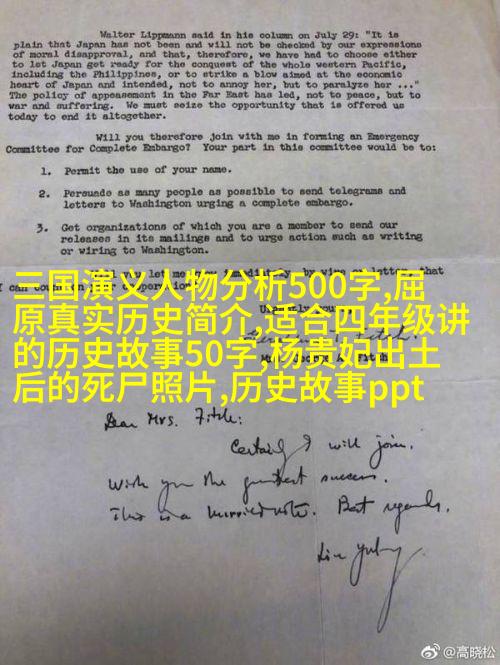 Walter Lippmann said in his column on July 29: "It is
plain that Japan has not been and will not be checked by our expressions
of moral disapproval, and that, therefore, we have had to choose either
to let Japan get ready for the conquest of the whole western Pacific,
including the Philippines, or to strike a blow aimed at the economic
heart of Japan and intended, not to annoy her, but to paralyze her ..."
The policy of appeasement in the Far East has led, not to peace, but to
war and suffering. We must seize the opportunity that is offered us
today to end it altogether.
Will you therefore join with me in forming an Emergency
Committee for Complete Embargo? Your part in this committee would be to:
1. Permit the use of your name.
2. Persuade as many people as possible to send telegrams and
letters to Washington urging a complete embargo.
3. Get organizations of which you are a member to send our
releases in its mailings and to urge action such as writing
or wiring to Washington.
三国演义人物分析500字,屈
原真实历史简介,适合四年级讲
的历史故事50字,杨贵妃出土
后的死尸照片,历史故事ppt
Dear Mrs. Fitch:
Certainly I will join.
Wish you the greatest success.
This is a hurried note. Best regards.
Lin Yutang
@高晓松